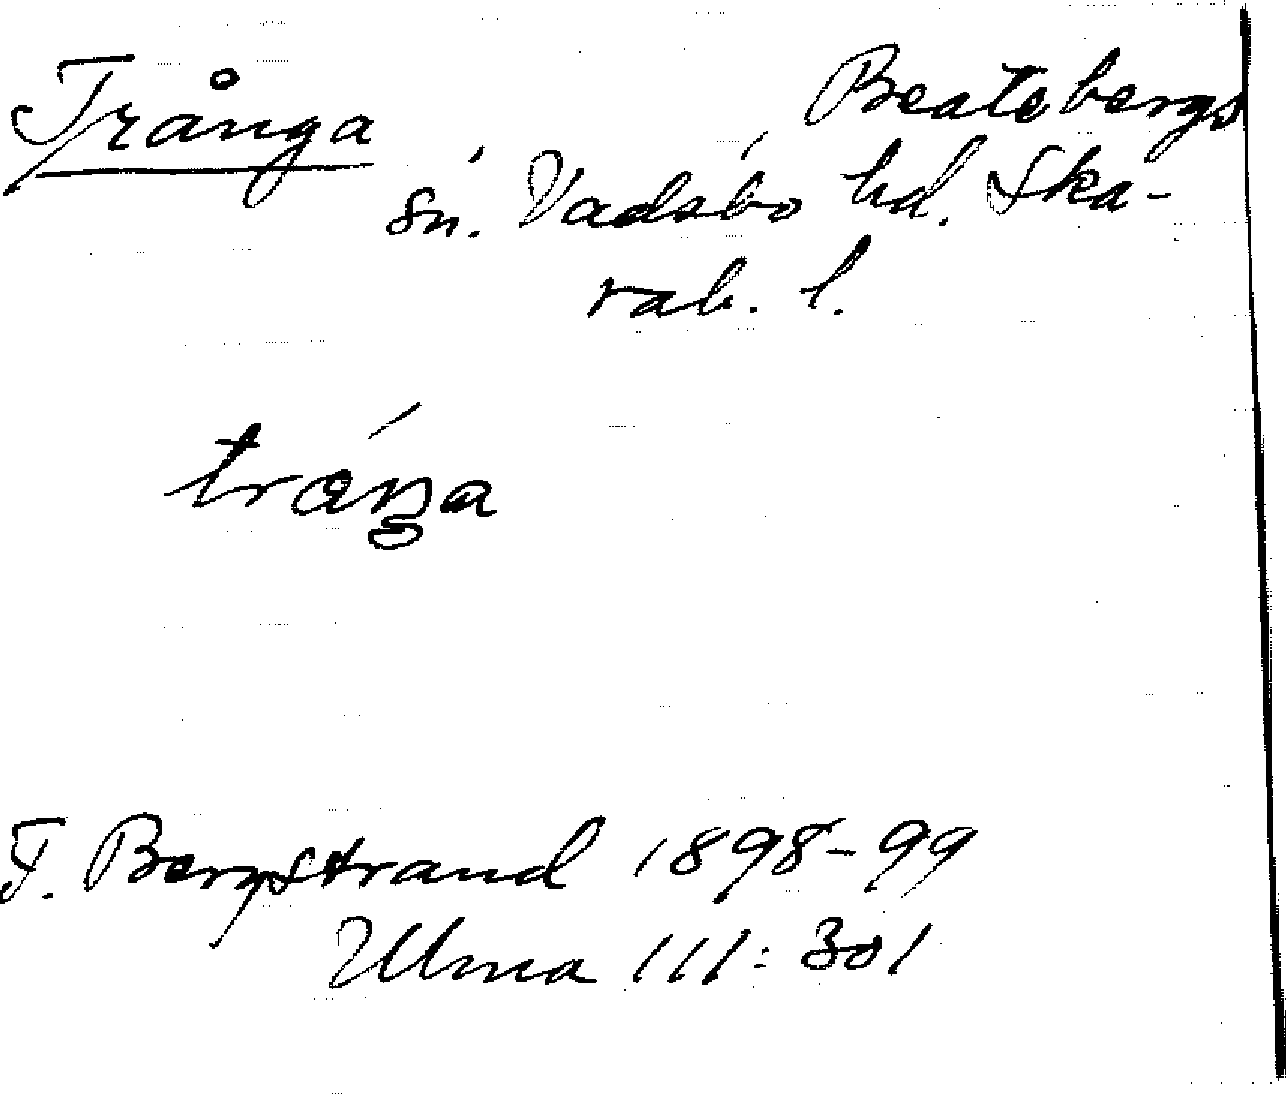 Trånga
Beatebergs
sn. Vadsbo hd. Ska-
rab. l.
tråŋa
F. Bergstrand 1898-99
Ulma 111:301